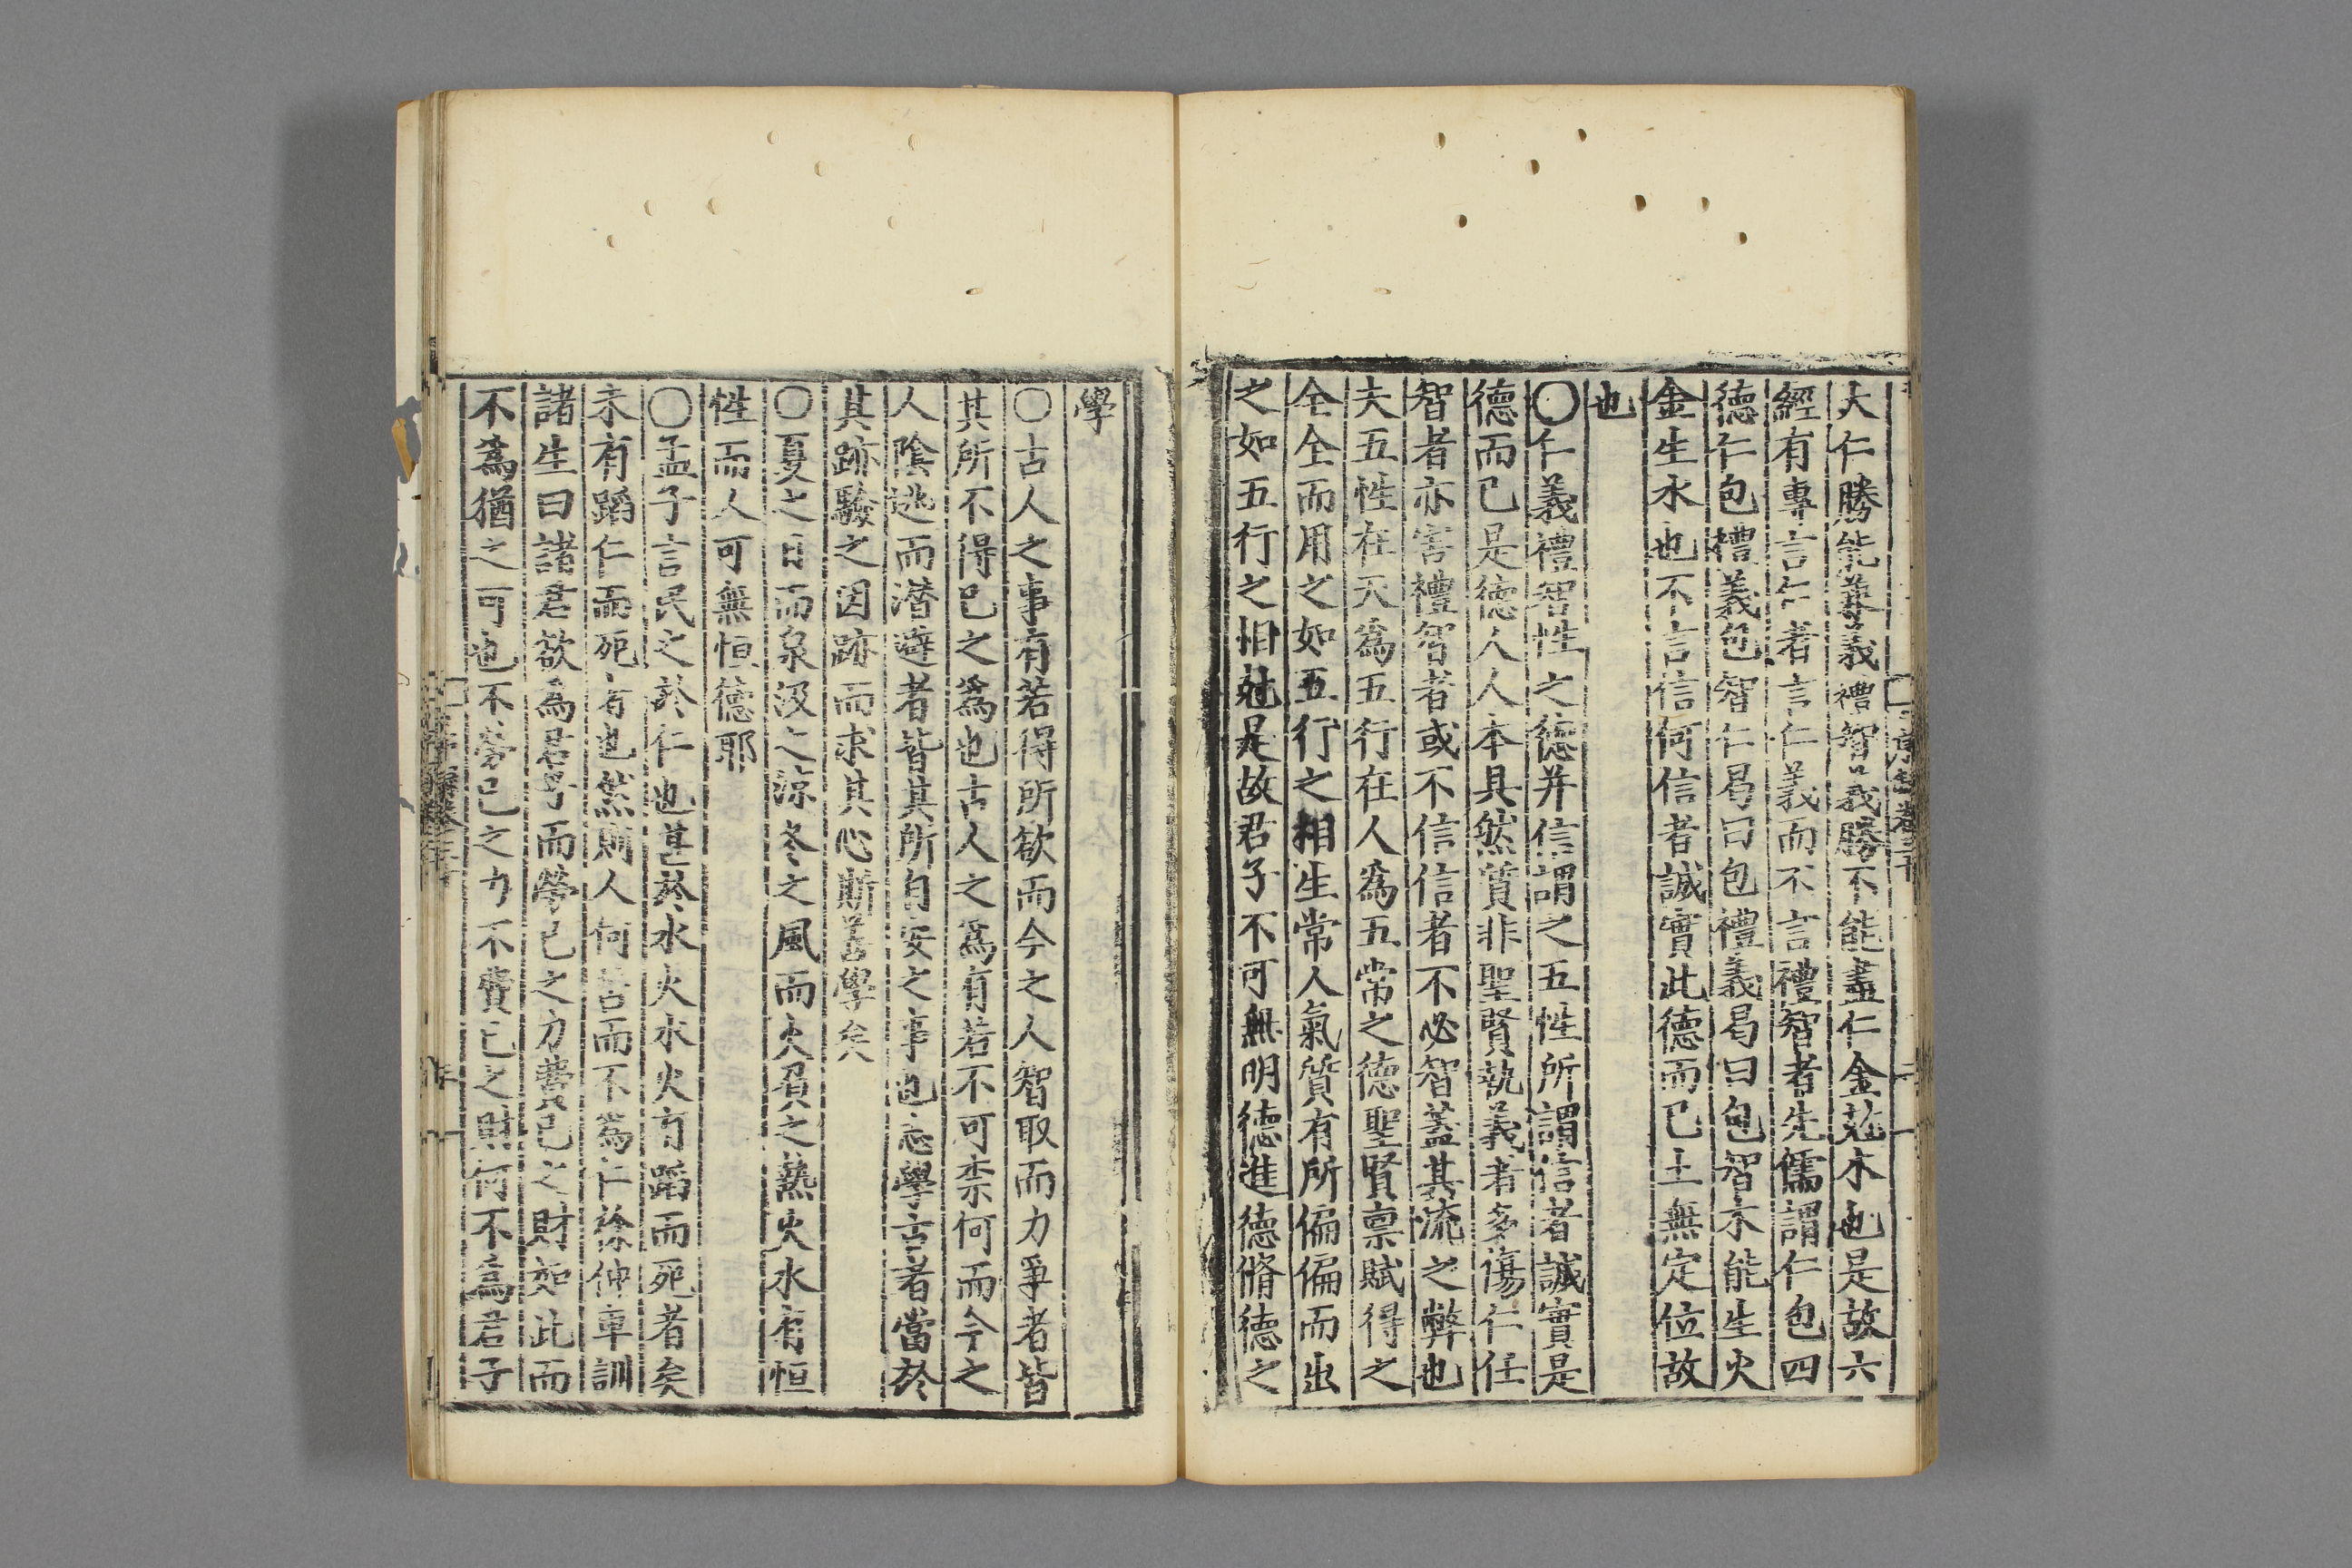 大仁勝能兼義禮智義勝不能盡仁金尅木也是故六
經有專言仁者言仁義而不言禮智者先儒謂仁包四
德仁包禮義包智仁曷曰包禮義曷曰包智木能生火
金生水也不言信何信者誠實此德而已土無定位故
也
○仁義禮智性之德并信謂之五性所謂信者誠實是
德而已是德人人本具然質非聖賢執義者多傷仁任
智者亦害禮智者或不信信者不必智蓋其流之弊也
夫五性在天爲五行在人爲五常之德聖賢禀賦得之
全全而用之如五行之相生常人氣質有所偏偏而出
之如五行之相尅是故君子不可無明德進德脩德之
學
○古人之事有若得所欲而今之人智取而力爭者皆
其所不得已之爲也古人之爲有若不可柰何而今之
人陰逃而潛避者皆其所自安之事也志學古者當於
其跡驗之因跡而求其心斯善學矣
○夏之日而泉汲之涼冬之風而火負之熱火水有恒
性而人可無恒德耶
○孟子言民之於仁也甚於水火水火有蹈而死者矣
未有蹈仁而死者也然則人何苦而不為仁徐仲車訓
諸生曰諸君欲為君子而勞己之力費己之財如此而
不爲猶之可也不勞己之力不費己之財何不爲君子